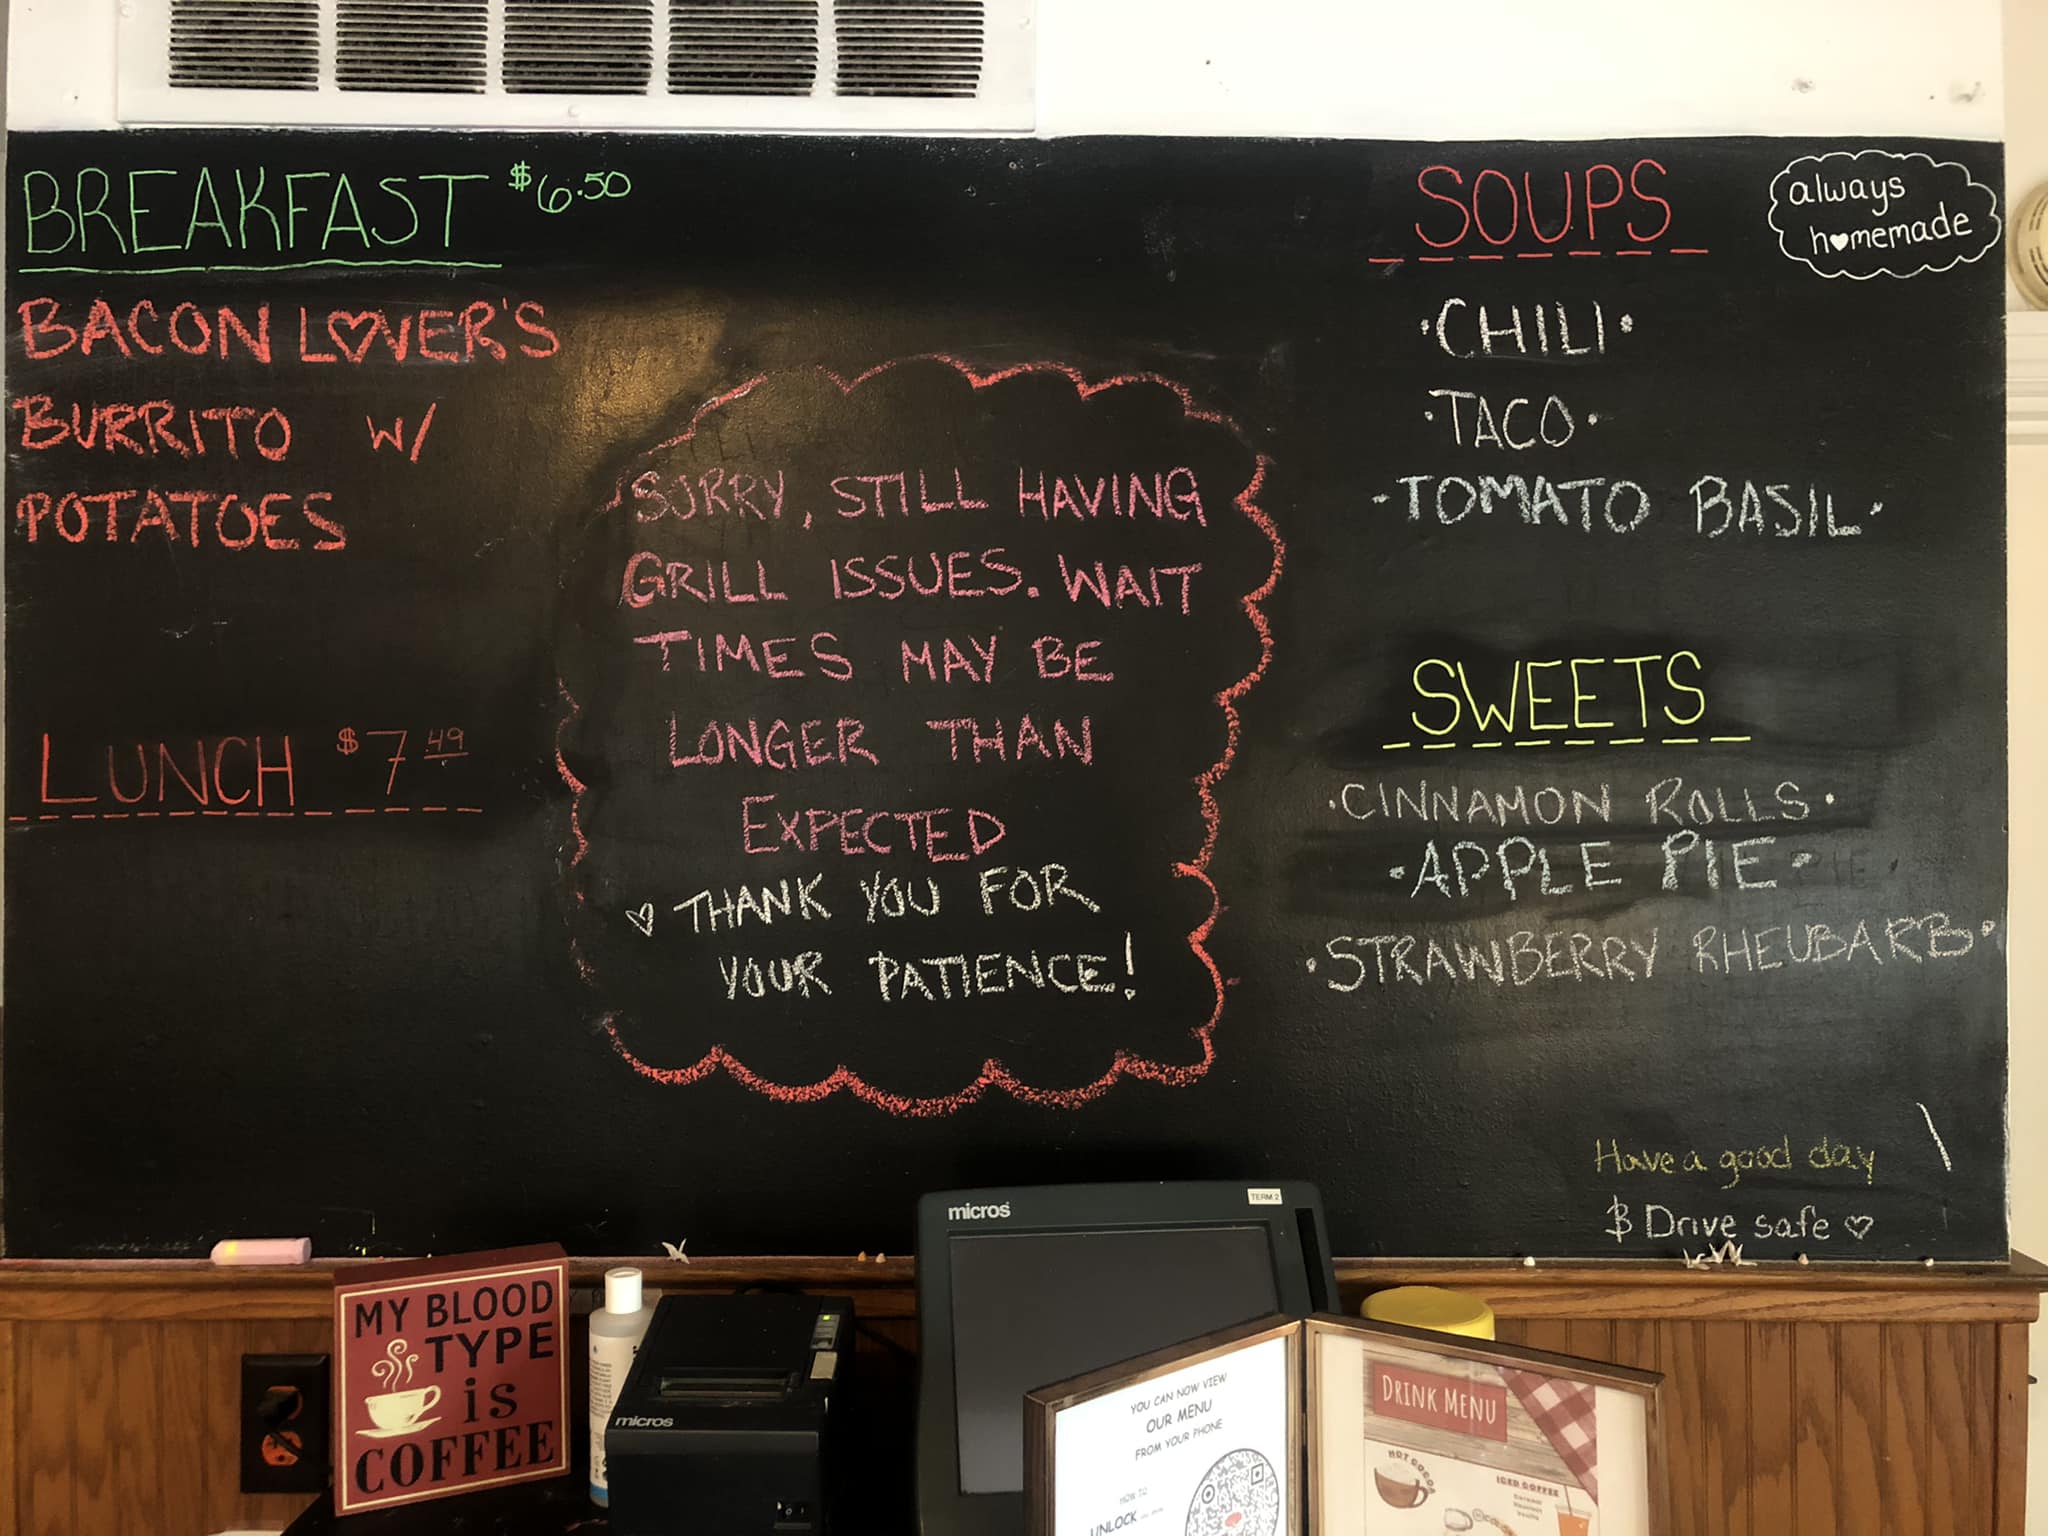 BREAKFAST $6.50
BACON LOVER'S
BURRITO W/
POTATOES
LUNCH $7.49
SORRY, STILL HAVING
GRILL ISSUES. WAIT
TIMES MAY BE
LONGER THAN
EXPECTED
♡ THANK YOU FOR
YOUR PATIENCE!
SOUPS
always
homemade
·CHILI·
·TACO·
·TOMATO BASIL·
SWEETS
·CINNAMON ROLLS·
·APPLE PIE·
·STRAWBERRY RHEUBARB·
Have a good day
$ Drive safe ♡
MY BLOOD
TYPE
is
COFFEE
micros
micros
TERM 2
YOU CAN NOW VIEW
OUR MENU
FROM YOUR PHONE
HOW TO
UNLOCK
DRINK MENU
HOT COCOA
ICED COFFEE